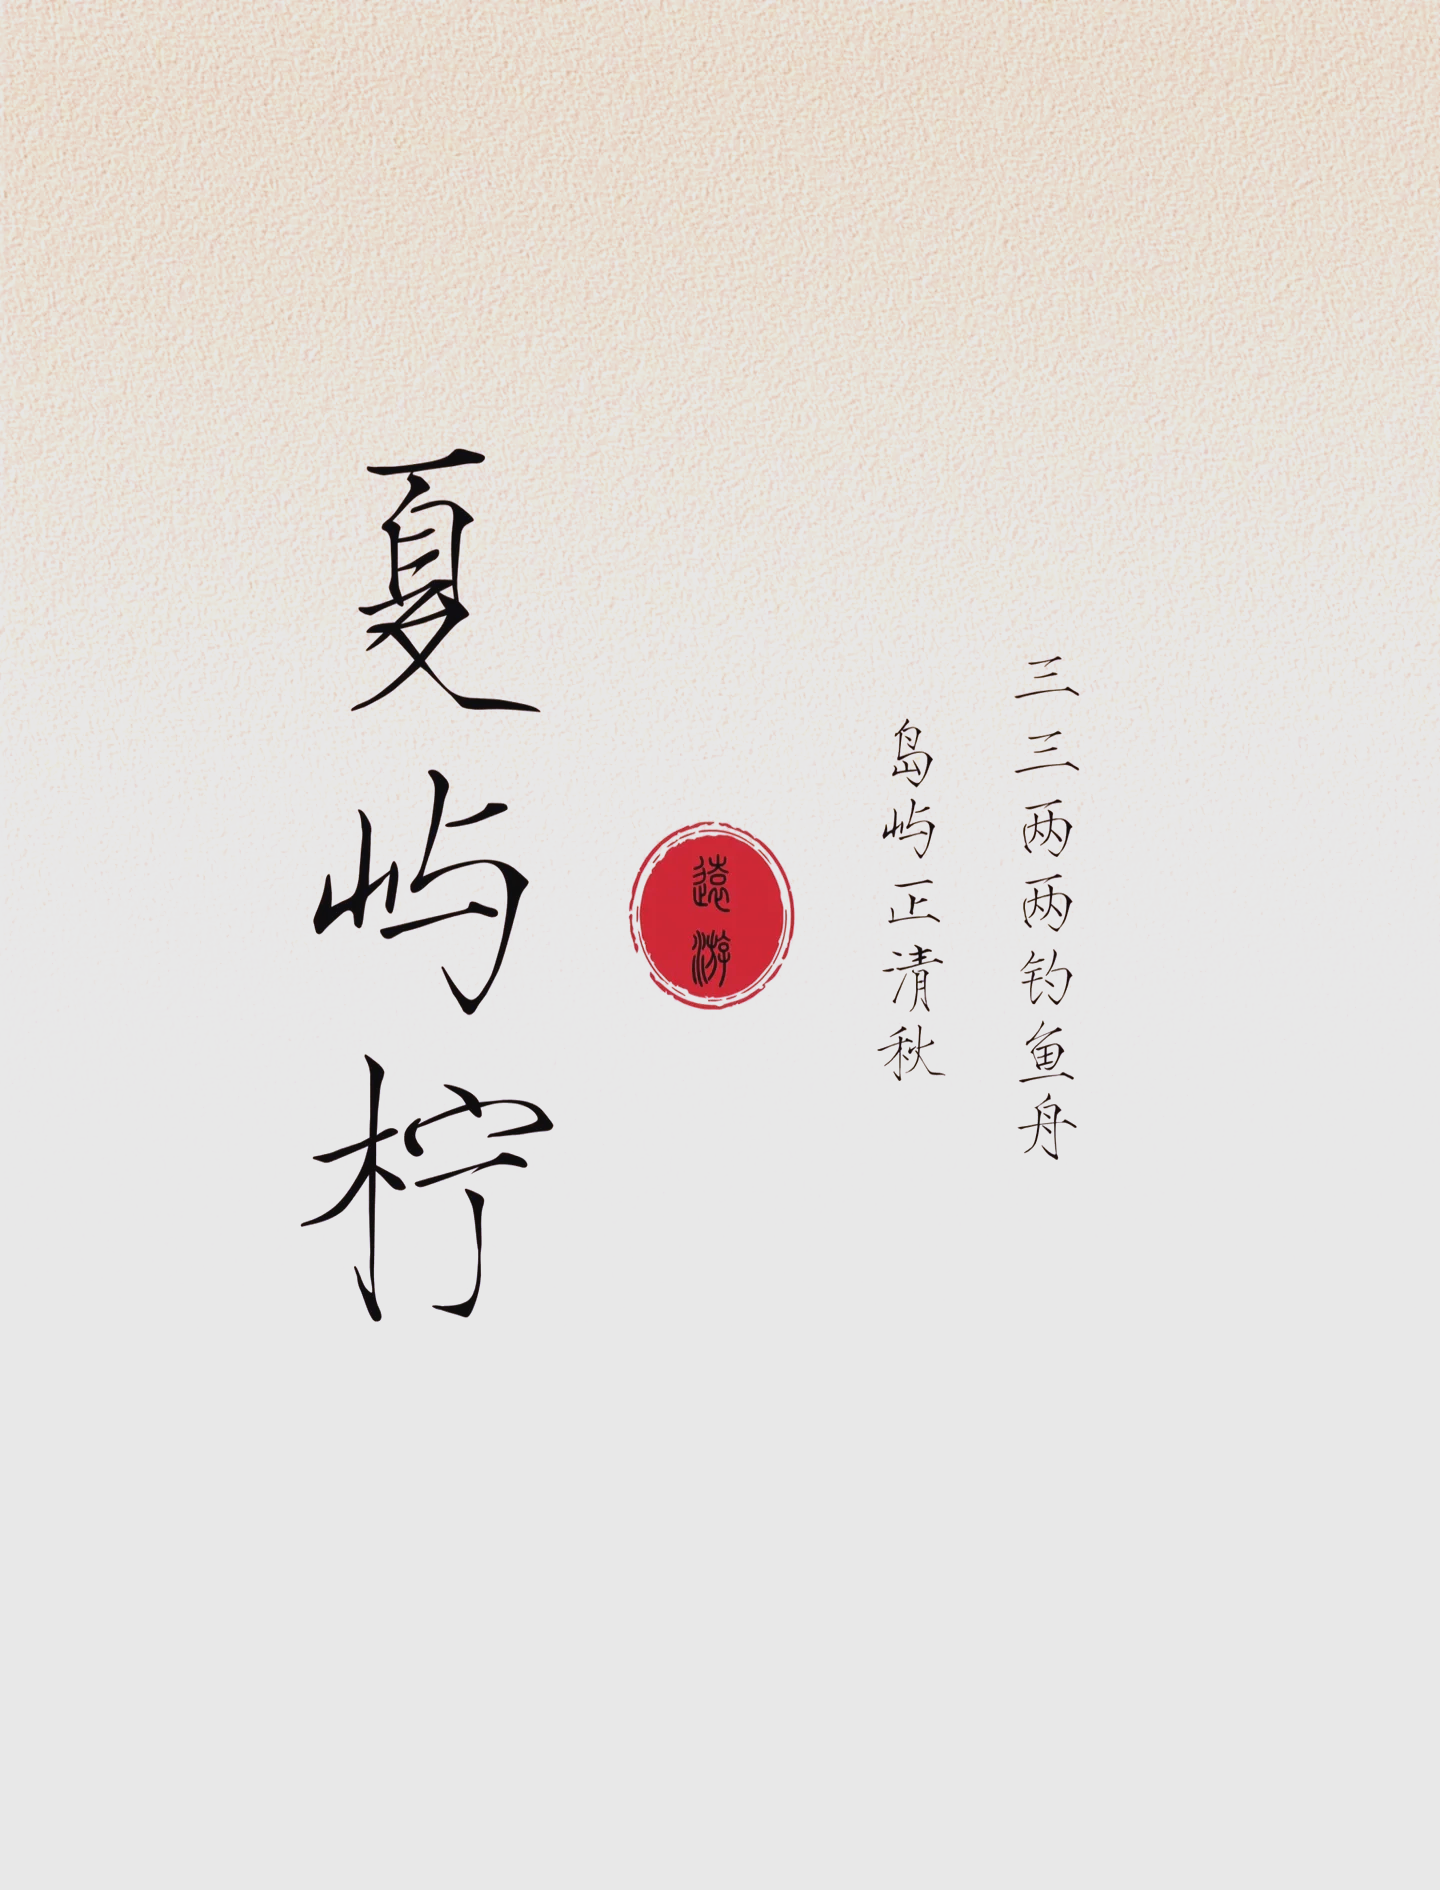 三三两两钓鱼舟
岛屿正清秋
遠游
夏屿柠